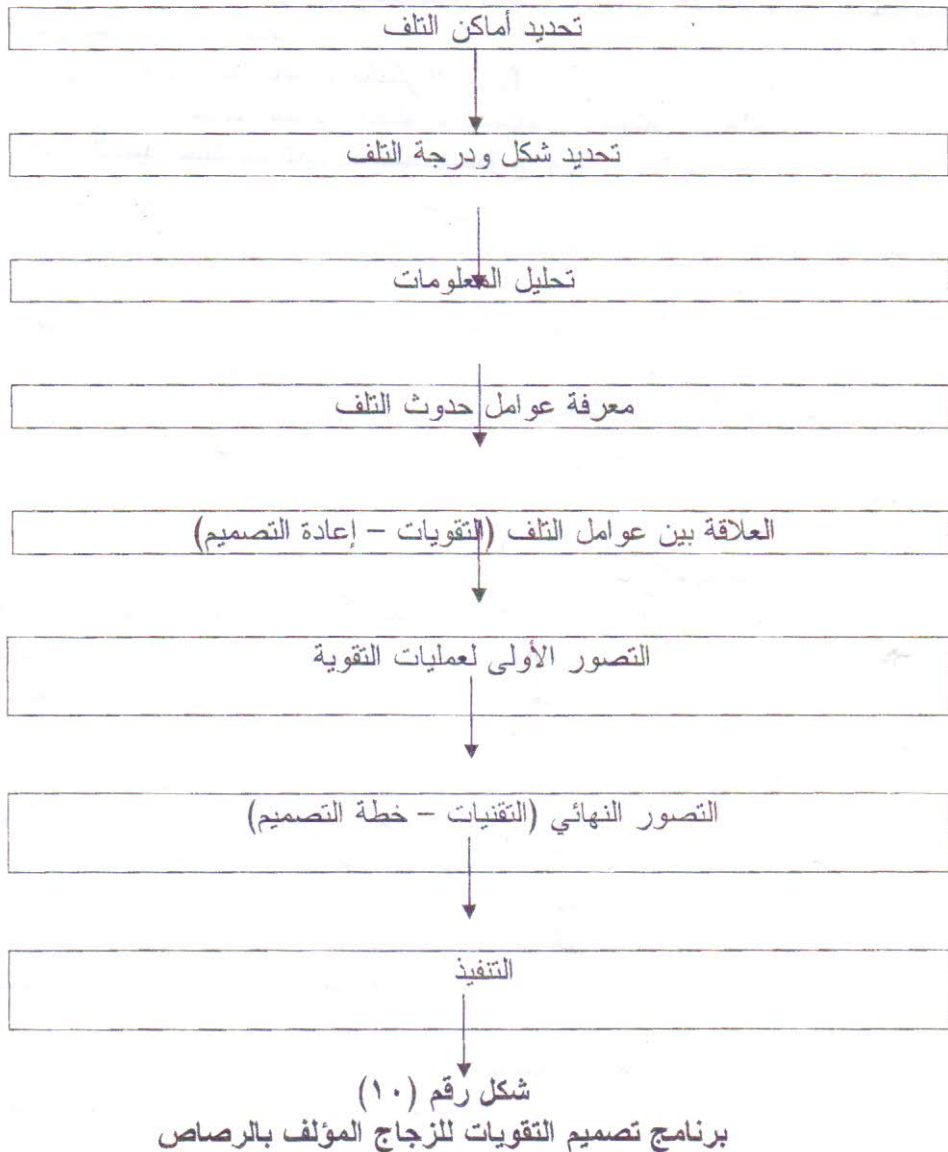 تحديد أماكن التلف
تحديد شكل ودرجة التلف
تحليل المعلومات
معرفة عوامل حدوث التلف
العلاقة بين عوامل التلف (التقويات – إعادة التصميم)
التصور الأولى لعمليات التقوية
التصور النهائي (التقنيات – خطة التصميم)
التنفيذ
شكل رقم (١٠)
برنامج تصميم التقويات للزجاج المؤلف بالرصاص